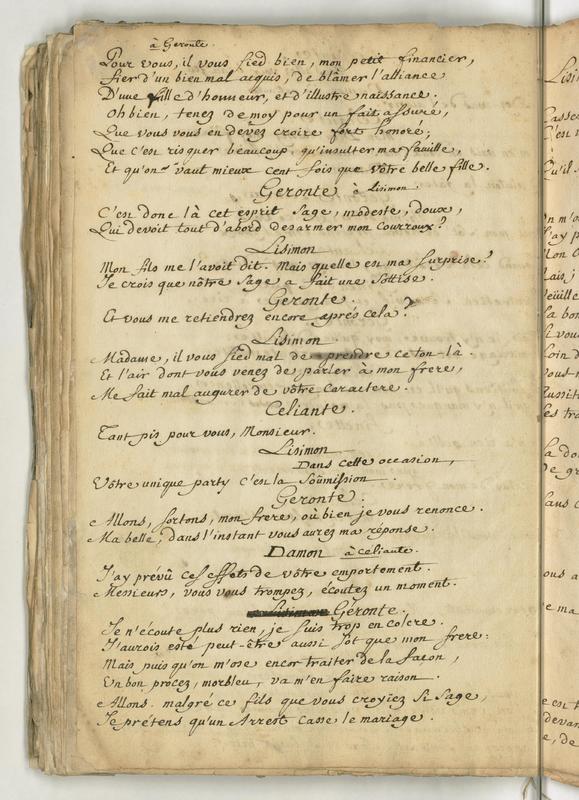 à Geronte.
Pour vous, il vous sied bien, mon petit financier,
fier d'un bien mal acquis, de blâmer l'alliance
D'une fille d'honneur, et d'illustre naissance.
Oh bien, tenez de moy pour un fait assuré,
Que vous vous en devez croire fort honoré;
Que c'est risquer beaucoup, qu'insulter ma famille,
Et qu'on vaut mieux cent fois que vôtre belle fille.
Geronte à Lisimon
C'est donc là cet esprit sage, modeste, doux,
Qui devoit tout d'abord desarmer mon courroux?
Lisimon
Mon fils me l'avoit dit. Mais quelle est ma surprise?
Je crois que nôtre sage a fait une sottise.
Geronte.
Et vous me retiendrez encore aprés cela?
Lisimon
Madame, il vous sied mal de prendre ce ton-là.
Et l'air dont vous venez de parler à mon frere,
Me fait mal augurer de vôtre caractere.
Celiante.
Tant pis pour vous, Monsieur.
Lisimon
Dans cette occasion,
Vôtre unique party c'est la soûmission.
Geronte.
Allons, sortons, mon frere, où bien je vous renonce.
Ma belle, dans l'instant vous aurez ma réponse.
Damon à celiante.
J'ay prévû ces effets de vôtre emportement.
Messieurs, vous vous trompez, écoutez un moment.
Geronte.
Je n'écoute plus rien, je suis trop en colere.
J'aurois esté peut-être aussi sot que mon frere:
Mais puis qu'on m'ose encor traiter de la façon,
Un bon procez, morbleu, va m'en faire raison.
Allons. malgré ce fils que vous croyiez si sage,
Je prétens qu'un Arrest casse le mariage.